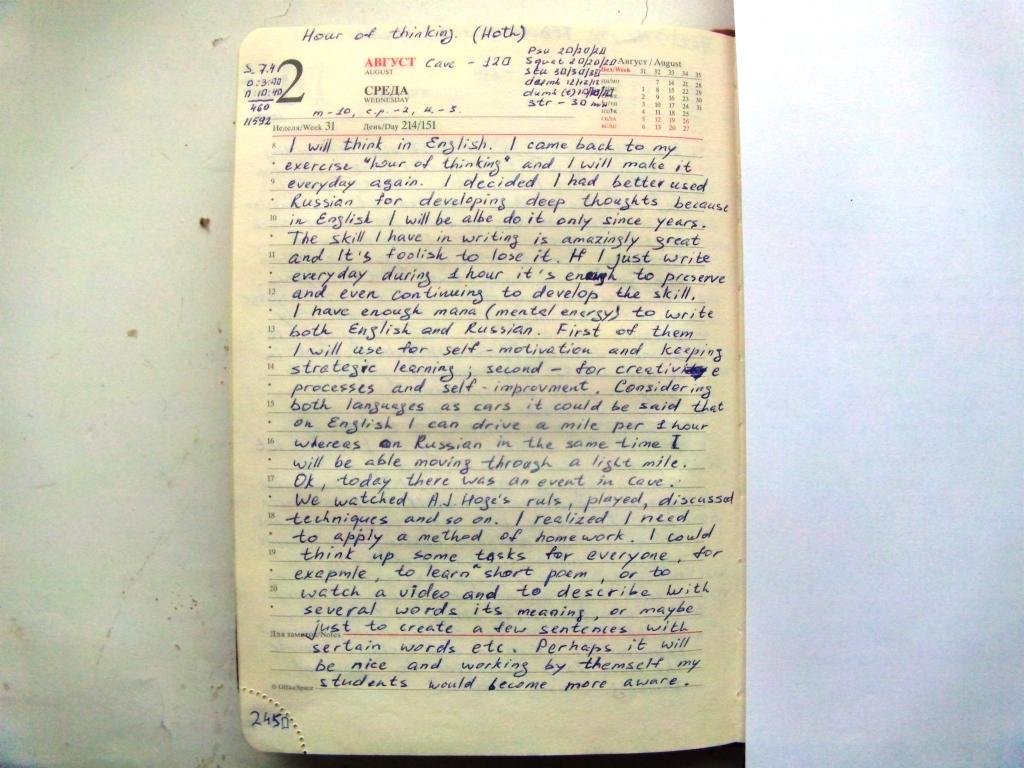 Hour of thinking. (Hoth)
S. 7.41
0:3:00
п:10:40
460
11592
2
АВГУСТ
AUGUST
Cave - 120
СРЕДА
WEDNESDAY
m - 10, c.p. - 2, и. - 3.
Psu 20/20/20
Squat 20/20/20
Stu 30/30/30
dumb 12/12/12
dumb (t) 10/10/10
str - 30 min
Август / August
Нед/Week 31 32 33 34 35
ПН/MO 7 14 21 28
1 8 15 22 29
2 9 16 23 30
3 10 17 24 31
4 11 18 25
СБ/SA 5 12 19 26
ВС/SU 6 13 20 27
Неделя/Week 31 День/Day 214/151
8 I will think in English. I came back to my
exercise "hour of thinking" and I will make it
9 everyday again. I decided I had better used
Russian for developing deep thoughts because
10 in English I will be albe do it only since years.
The skill I have in writing is amazingly great
11 and It's foolish to lose it. If I just write
everyday during 1 hour it's enough to preserve
12 and even continuing to develop the skill.
I have enough mana (mental energy) to write
13 both English and Russian. First of them
I will use for self-motivation and keeping
14 strategic learning; second - for creative
processes and self-improvment. Considering
15 both languages as cars it could be said that
on English I can drive a mile per 1 hour
16 whereas on Russian in the same time I
will be able moving through a light mile.
17 Ok, today there was an event in cave.
We watched A.J. Hoge's ruls, played, discussed
18 techniques and so on. I realized I need
to apply a method of homework. I could
19 think up some tasks for everyone, for
exapmle, to learn a short poem, or to
20 watch a video and to describe with
several words its meaning, or maybe
just to create a few sentences with
Для заметок/Notes
sertain words etc. Perhaps it will
be nice and working by themself my
students would become more aware.
© OfficeSpace
245